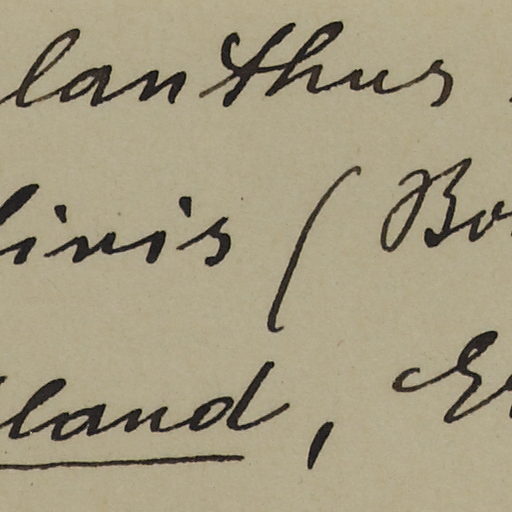 lanthus
livis (Bo
land, E